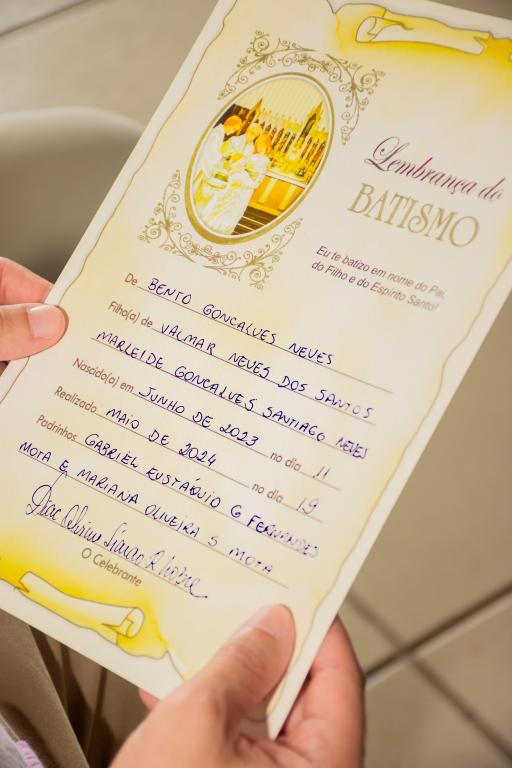 Lembrança do
BATISMO
Eu te batizo em nome do Pai,
do Filho e do Espírito Santo!
De BENTO GONCALVES NEVES
Filho(a) de VALMAR NEVES DOS SANTOS
MARLEIDE GONCALVES SANTIAGO NEVES
Nascido(a) em JUNHO DE 2023 no dia 11
Realizado MAIO DE 2024 no dia 19
Padrinhos GABRIEL EUSTÁQUIO G FERNANDES
MOTA E MARIANA OLIVEIRA S MOTA
O Celebrante